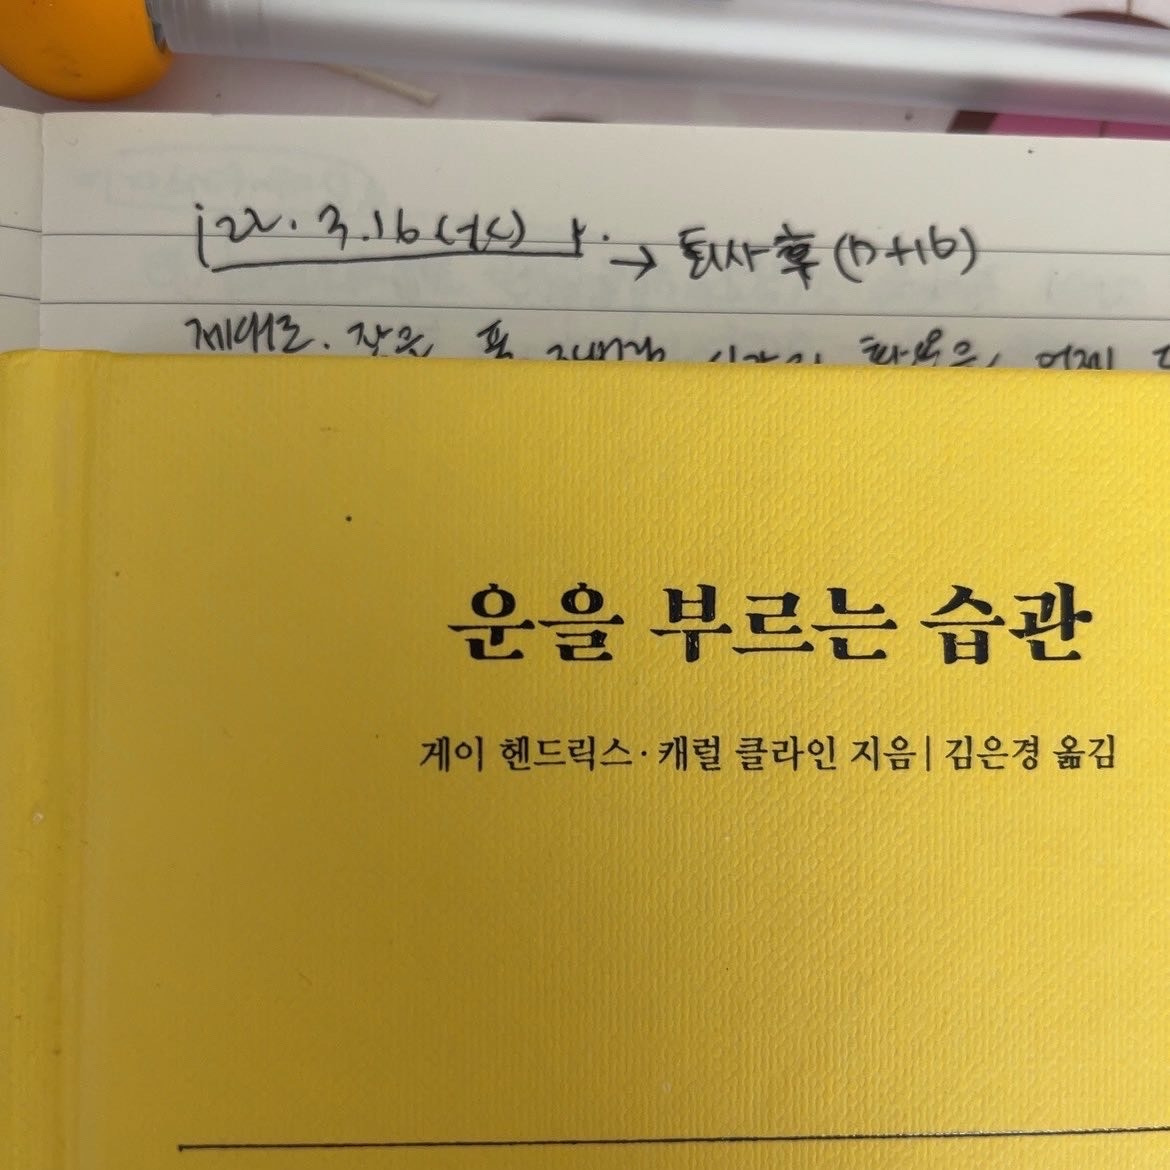 '22. 3. 16 (수)
→ 퇴사 후 (D+16)
제대로
운을 부르는 습관
게이 헨드릭스·캐럴 클라인 지음 | 김은경 옮김